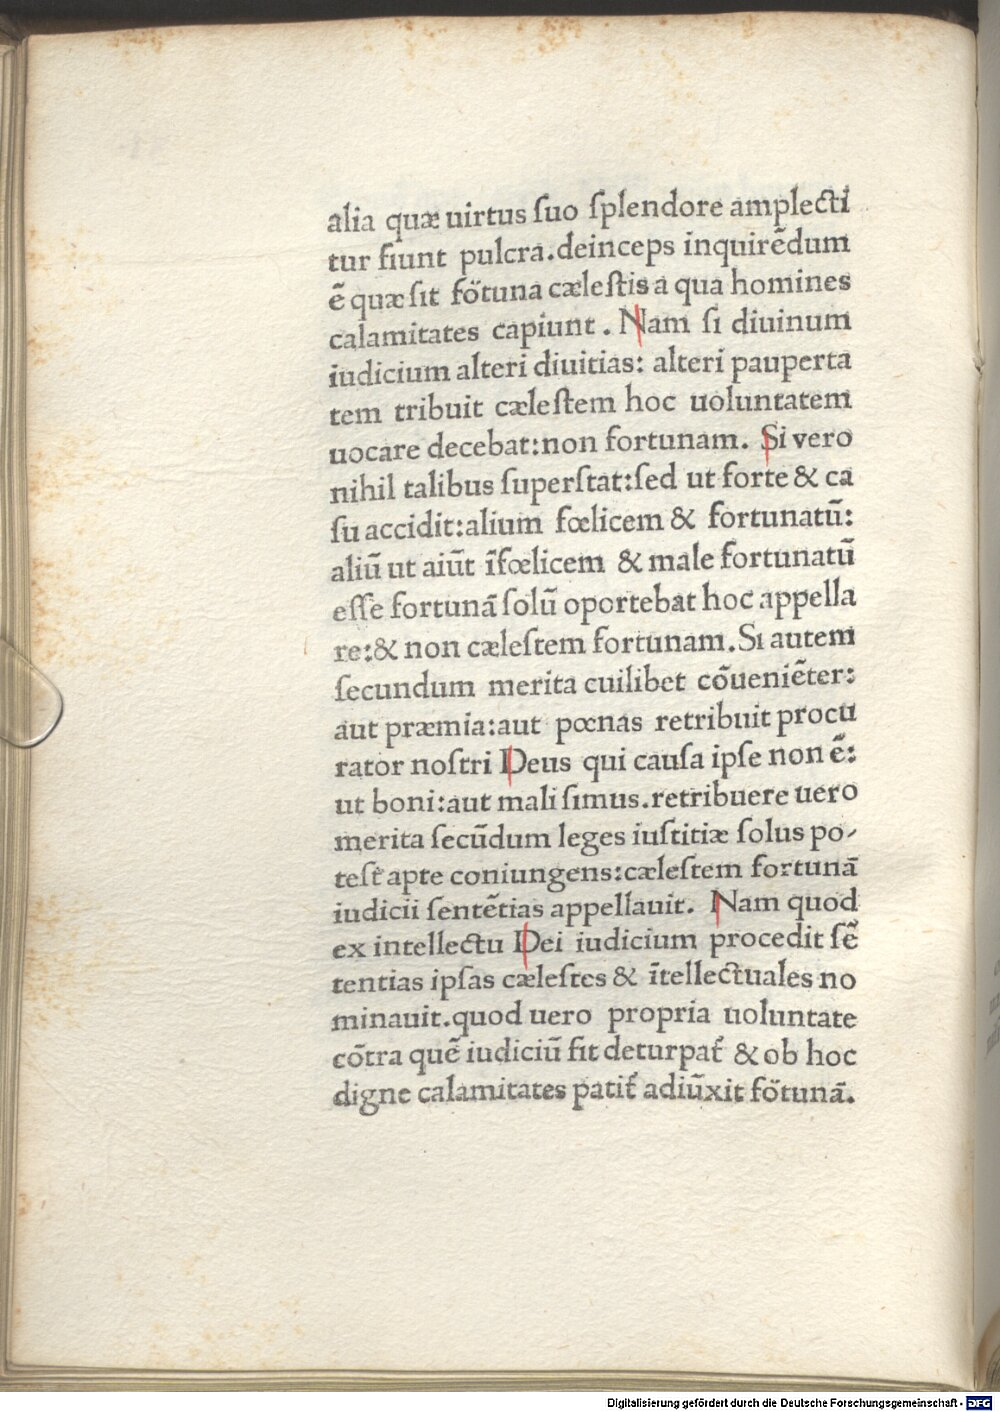 alia quæ uirtus ſuo ſplendore amplecti
tur fiunt pulcra.deinceps inquirēdum
ē quæ ſit fo᷑tuna cæleſtis a qua homines
calamitates capiunt. Nam ſi diuinum
iudicium alteri diuitias: alteri pauperta
tem tribuit cæleſtem hoc uoluntatem
uocare decebat:non fortunam. Si vero
nihil talibus ſuperſtat:ſed ut forte & ca
ſu accidit:alium fœlicem & fortunatū:
aliū ut aiūt īfœlicem & male fortunatū
eſſe fortunā ſolū oportebat hoc appella
re:& non cæleſtem fortunam.Si autem
ſecundum merita cuilibet cōueniēter:
aut præmia:aut pœnas retribuit procu
rator noſtri Deus qui cauſa ipſe non ē:
ut boni:aut mali ſimus.retribuere uero
merita ſecūdum leges iuſtitiæ ſolus po-
teſt apte coniungens:cæleſtem fortunā
iudicii ſentētias appellauit. Nam quod
ex intellectu Dei iudicium procedit ſē
tentias ipſas cæleſtes & ītellectuales no
minauit.quod uero propria uoluntate
cōtra quē iudiciū fit deturpat᷑ & ob hoc
digne calamitates patit᷑ adiūxit fo᷑tunā.
Digitalisierung gefördert durch die Deutsche Forschungsgemeinschaft - DFG